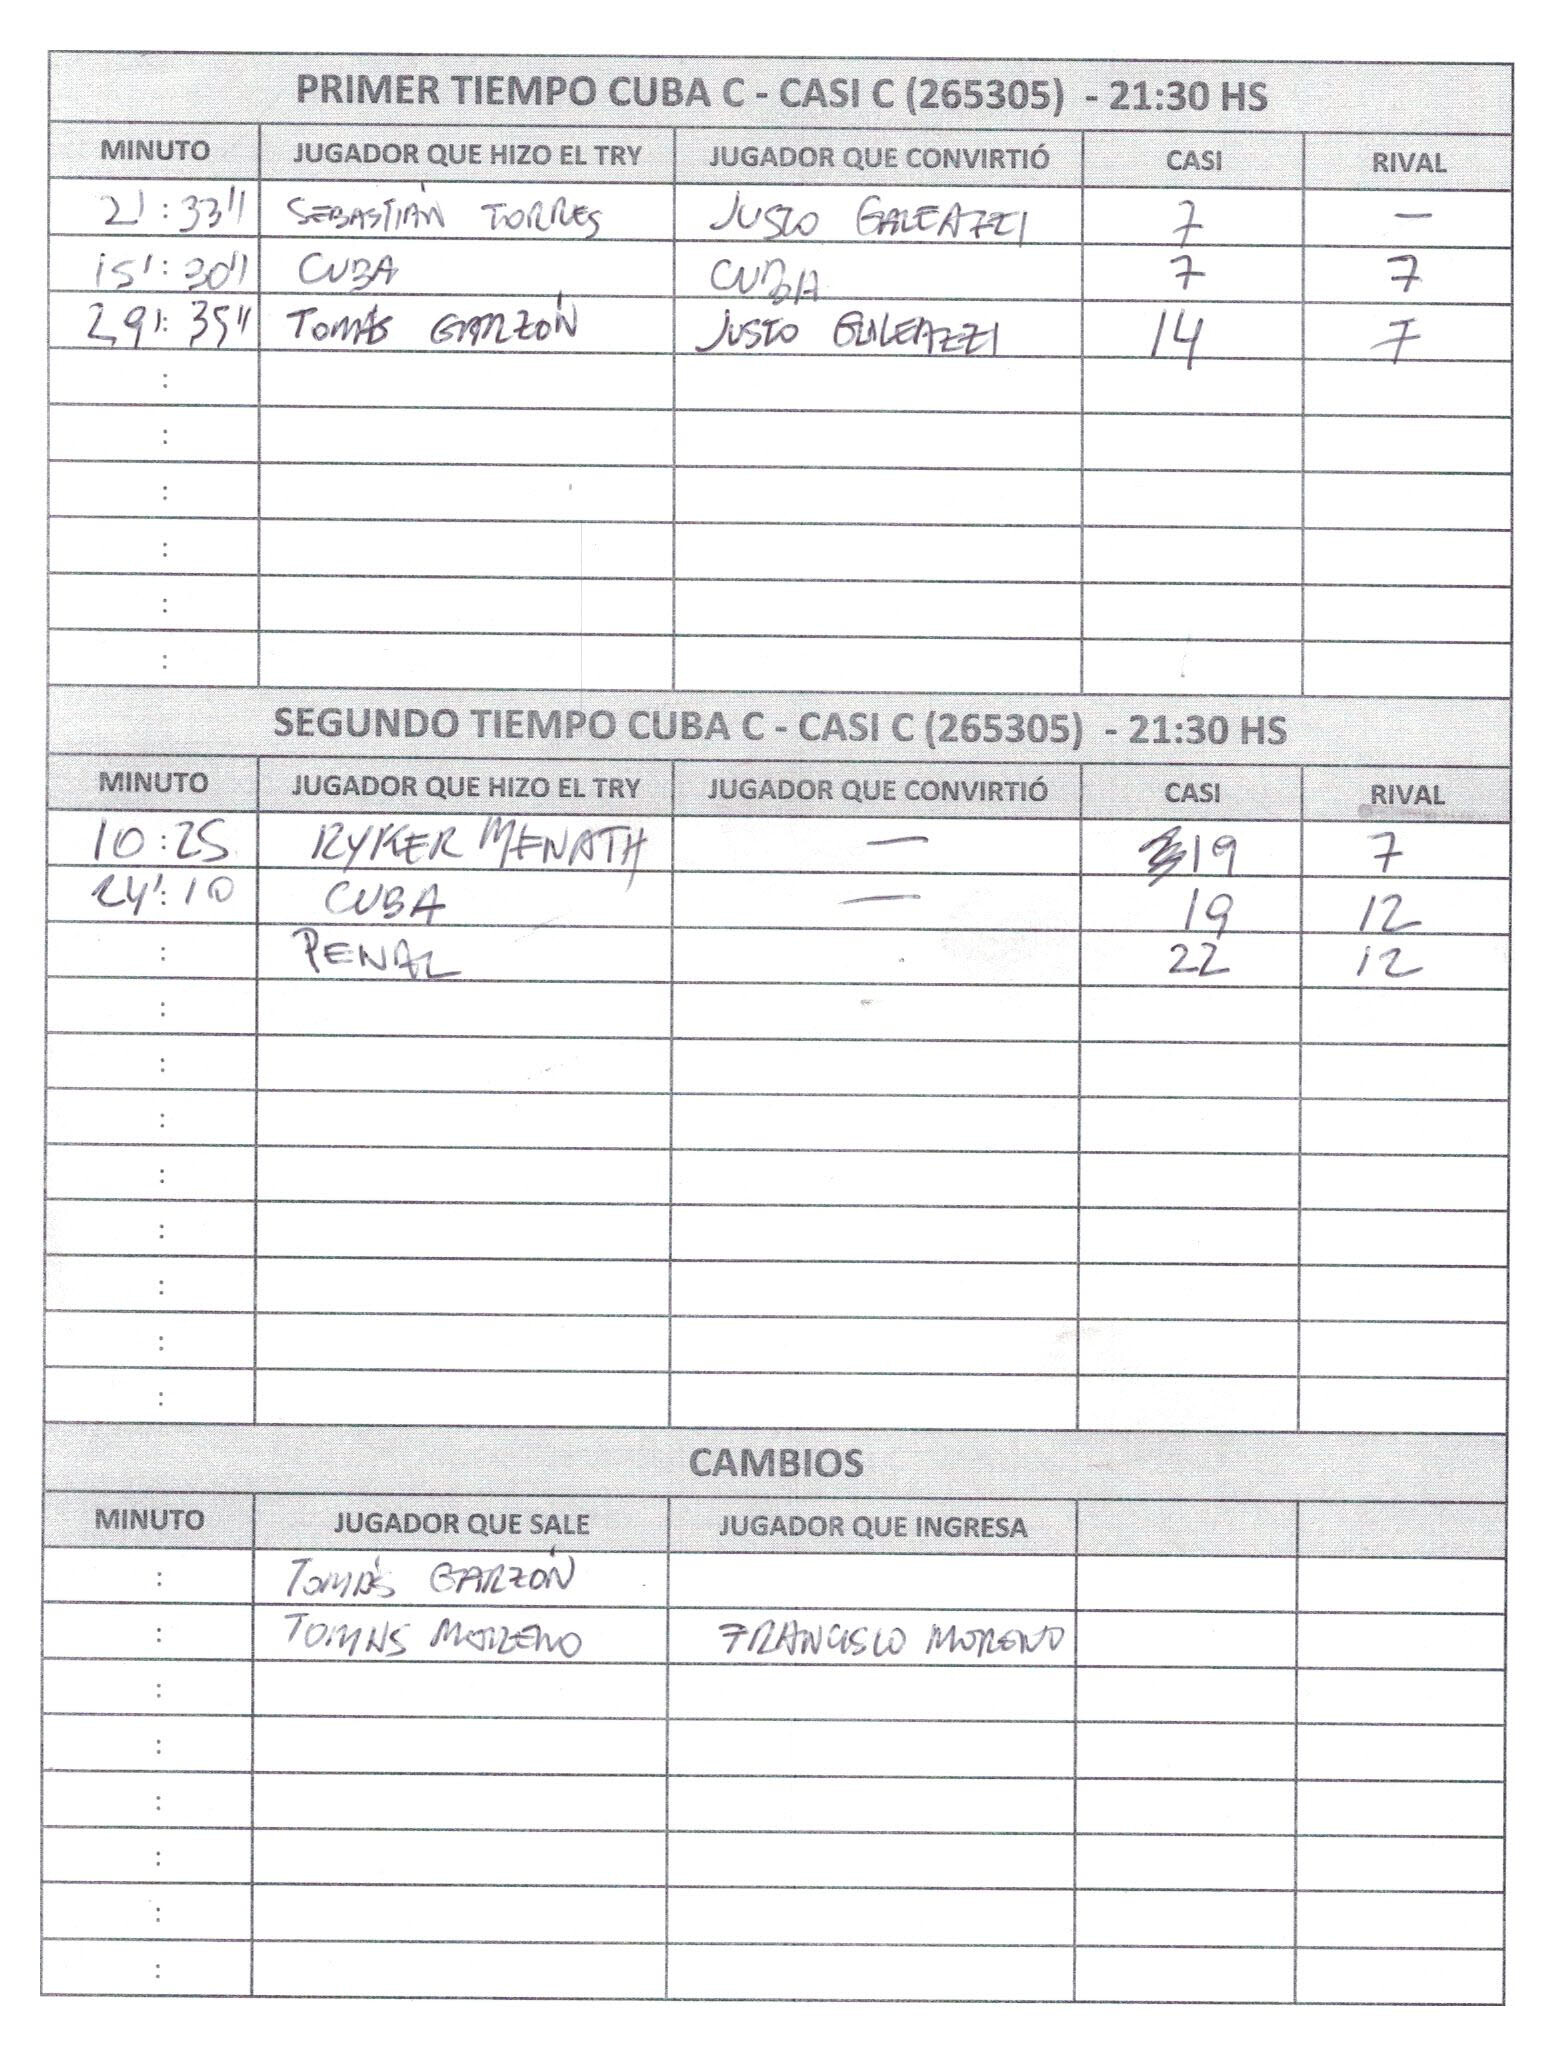 PRIMER TIEMPO CUBA C - CASI C (265305) - 21:30 HS
MINUTO JUGADOR QUE HIZO EL TRY JUGADOR QUE CONVIRTIÓ CASI RIVAL
2':33'' SEBASTIÁN TORRES JUSTO GALEAZZI 7 —
15':30'' CUBA CUBA 7 7
29':35'' TOMÁS GARZÓN JUSTO GALEAZZI 14 7
:
:
:
:
:
:
SEGUNDO TIEMPO CUBA C - CASI C (265305) - 21:30 HS
MINUTO JUGADOR QUE HIZO EL TRY JUGADOR QUE CONVIRTIÓ CASI RIVAL
10:25 RYKER MENATH — 19 7
24':10 CUBA — 19 12
: PENAL 22 12
:
:
:
:
:
:
:
:
CAMBIOS
MINUTO JUGADOR QUE SALE JUGADOR QUE INGRESA
: TOMÁS GARZÓN
: TOMAS MORENO FRANCISCO MORENO
:
:
:
:
:
: